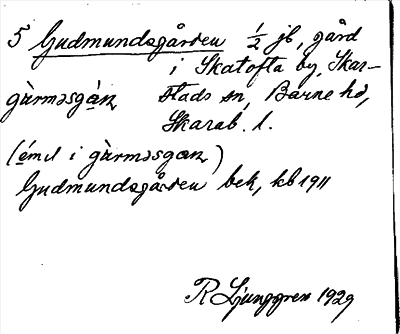 5 Gudmundsgården 1/2 jb, gård
i Skatofta by, Skar-
gùrməsgàn stads sn, Barne hd,
Skarab. l.
(émıl i gùrməsgan)
Gudmundsgården bek, kb 1911
R Ljunggren 1929